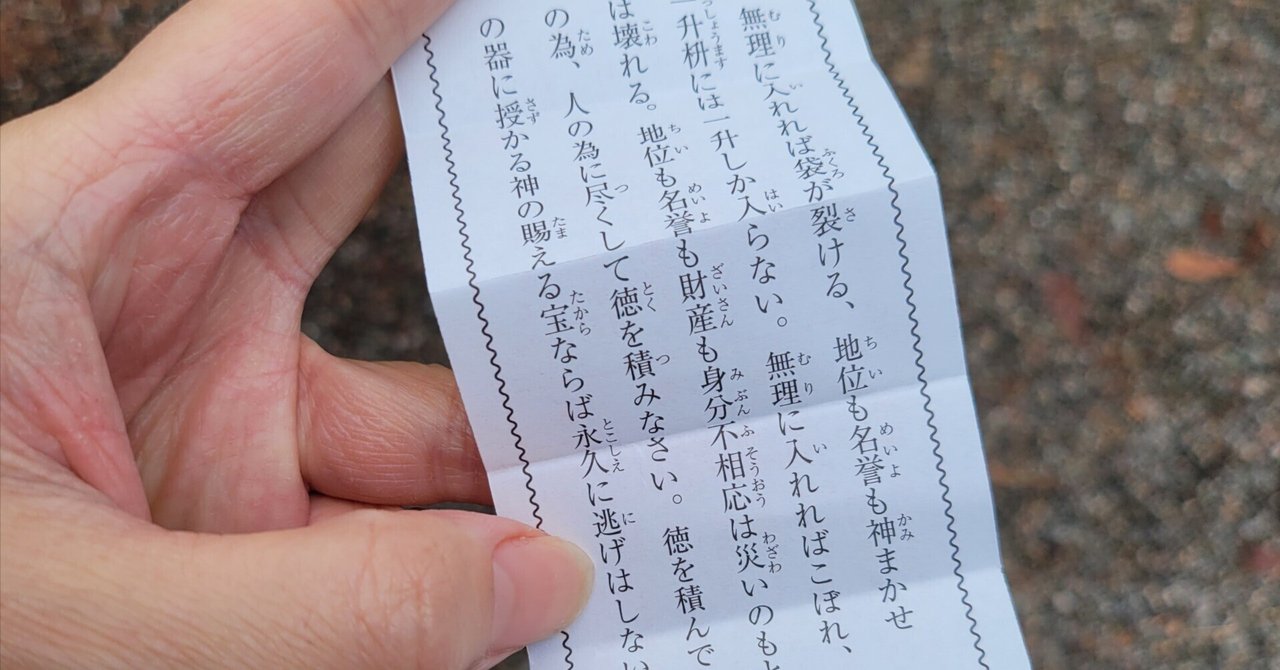 無理に入れれば袋が裂ける、 地位も名誉も神まかせ
一升枡には一升しか入らない。 無理に入れればこぼれ、
は壊れる。 地位も名誉も財産も身分不相応は災いのもと
の為、 人の為に尽くして徳を積みなさい。 徳を積んで
の器に授かる神の賜える宝ならば永久に逃げはしない